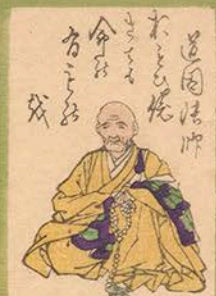 道因法師
おもひ侘
さても
命は
有もの
を